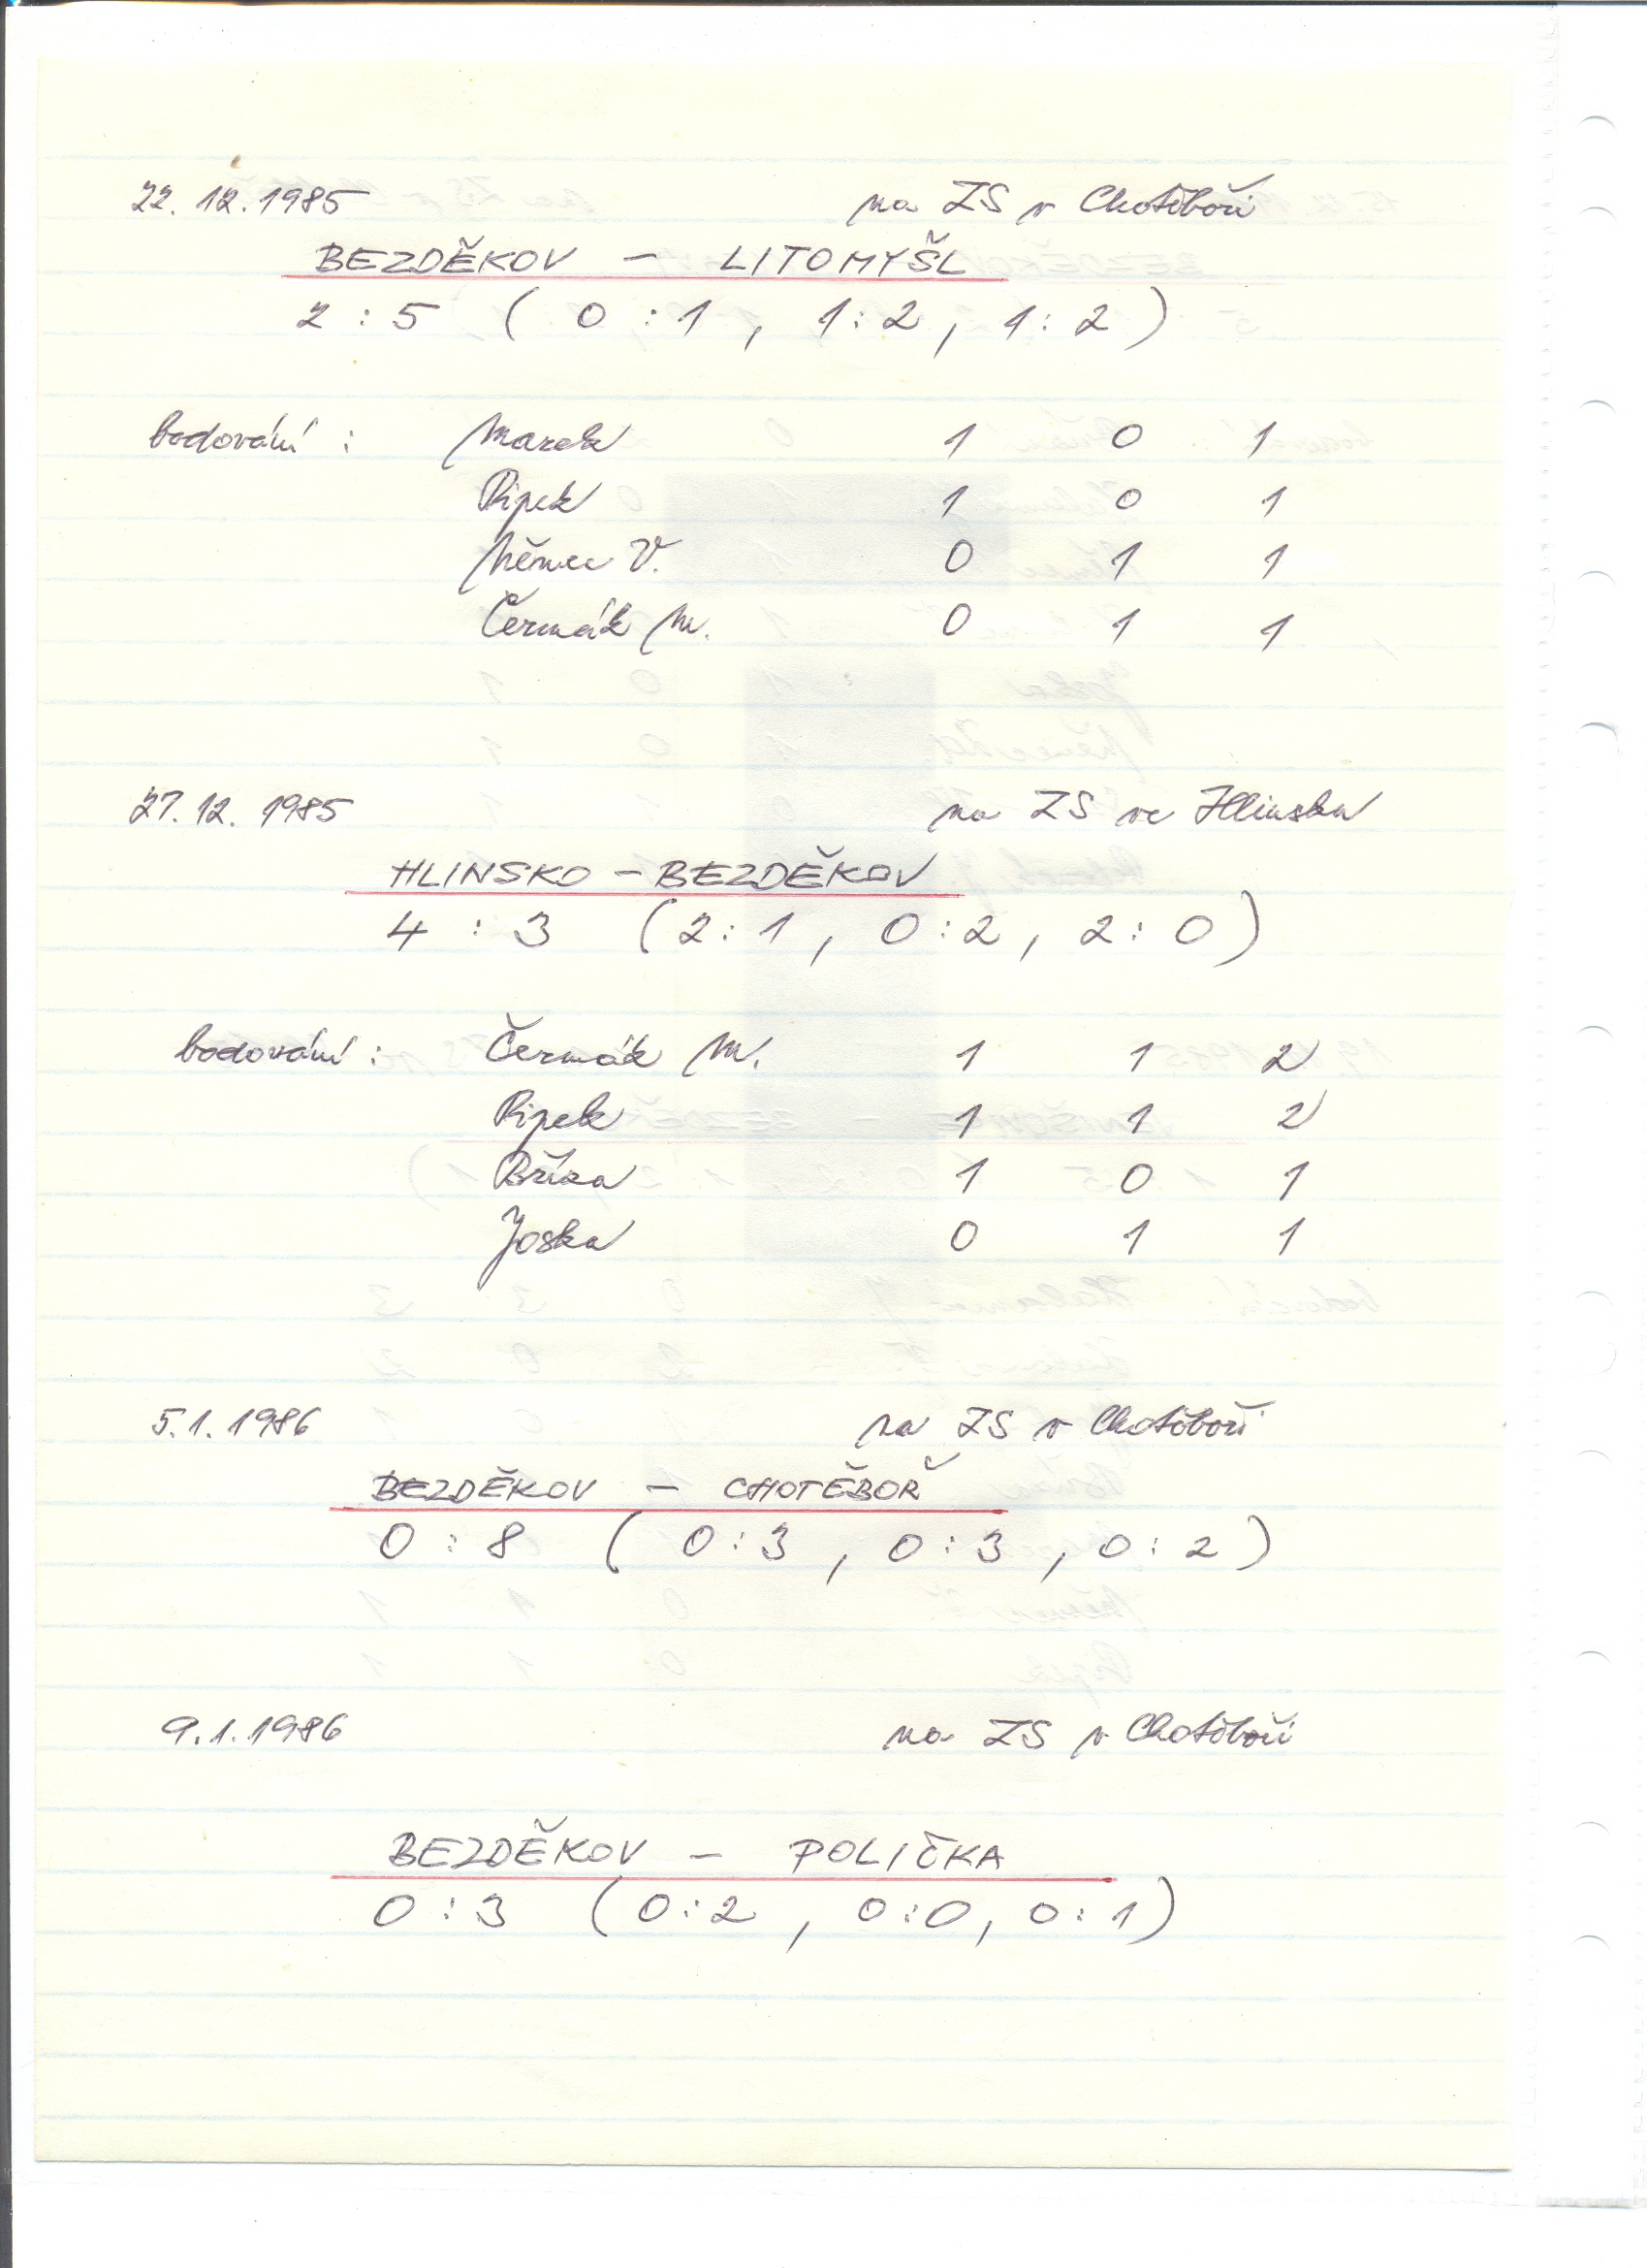 22. 12. 1985 na ZS v Chotěboři
BEZDĚKOV - LITOMYŠL
2 : 5 ( 0 : 1 , 1 : 2 , 1 : 2 )
bodování : Marek 1 0 1
Pipek 1 0 1
Němec V. 0 1 1
Čermák M. 0 1 1
27. 12. 1985 na ZS ve Hlinsku
HLINSKO - BEZDĚKOV
4 : 3 ( 2 : 1 , 0 : 2 , 2 : 0 )
bodování : Čermák M. 1 1 2
Pipek 1 1 2
Bříza 1 0 1
Joska 0 1 1
5. 1. 1986 na ZS v Chotěboři
BEZDĚKOV - CHOTĚBOŘ
0 : 8 ( 0 : 3 , 0 : 3 , 0 : 2 )
9. 1. 1986 na ZS v Chotěboři
BEZDĚKOV - POLIČKA
0 : 3 ( 0 : 2 , 0 : 0 , 0 : 1 )